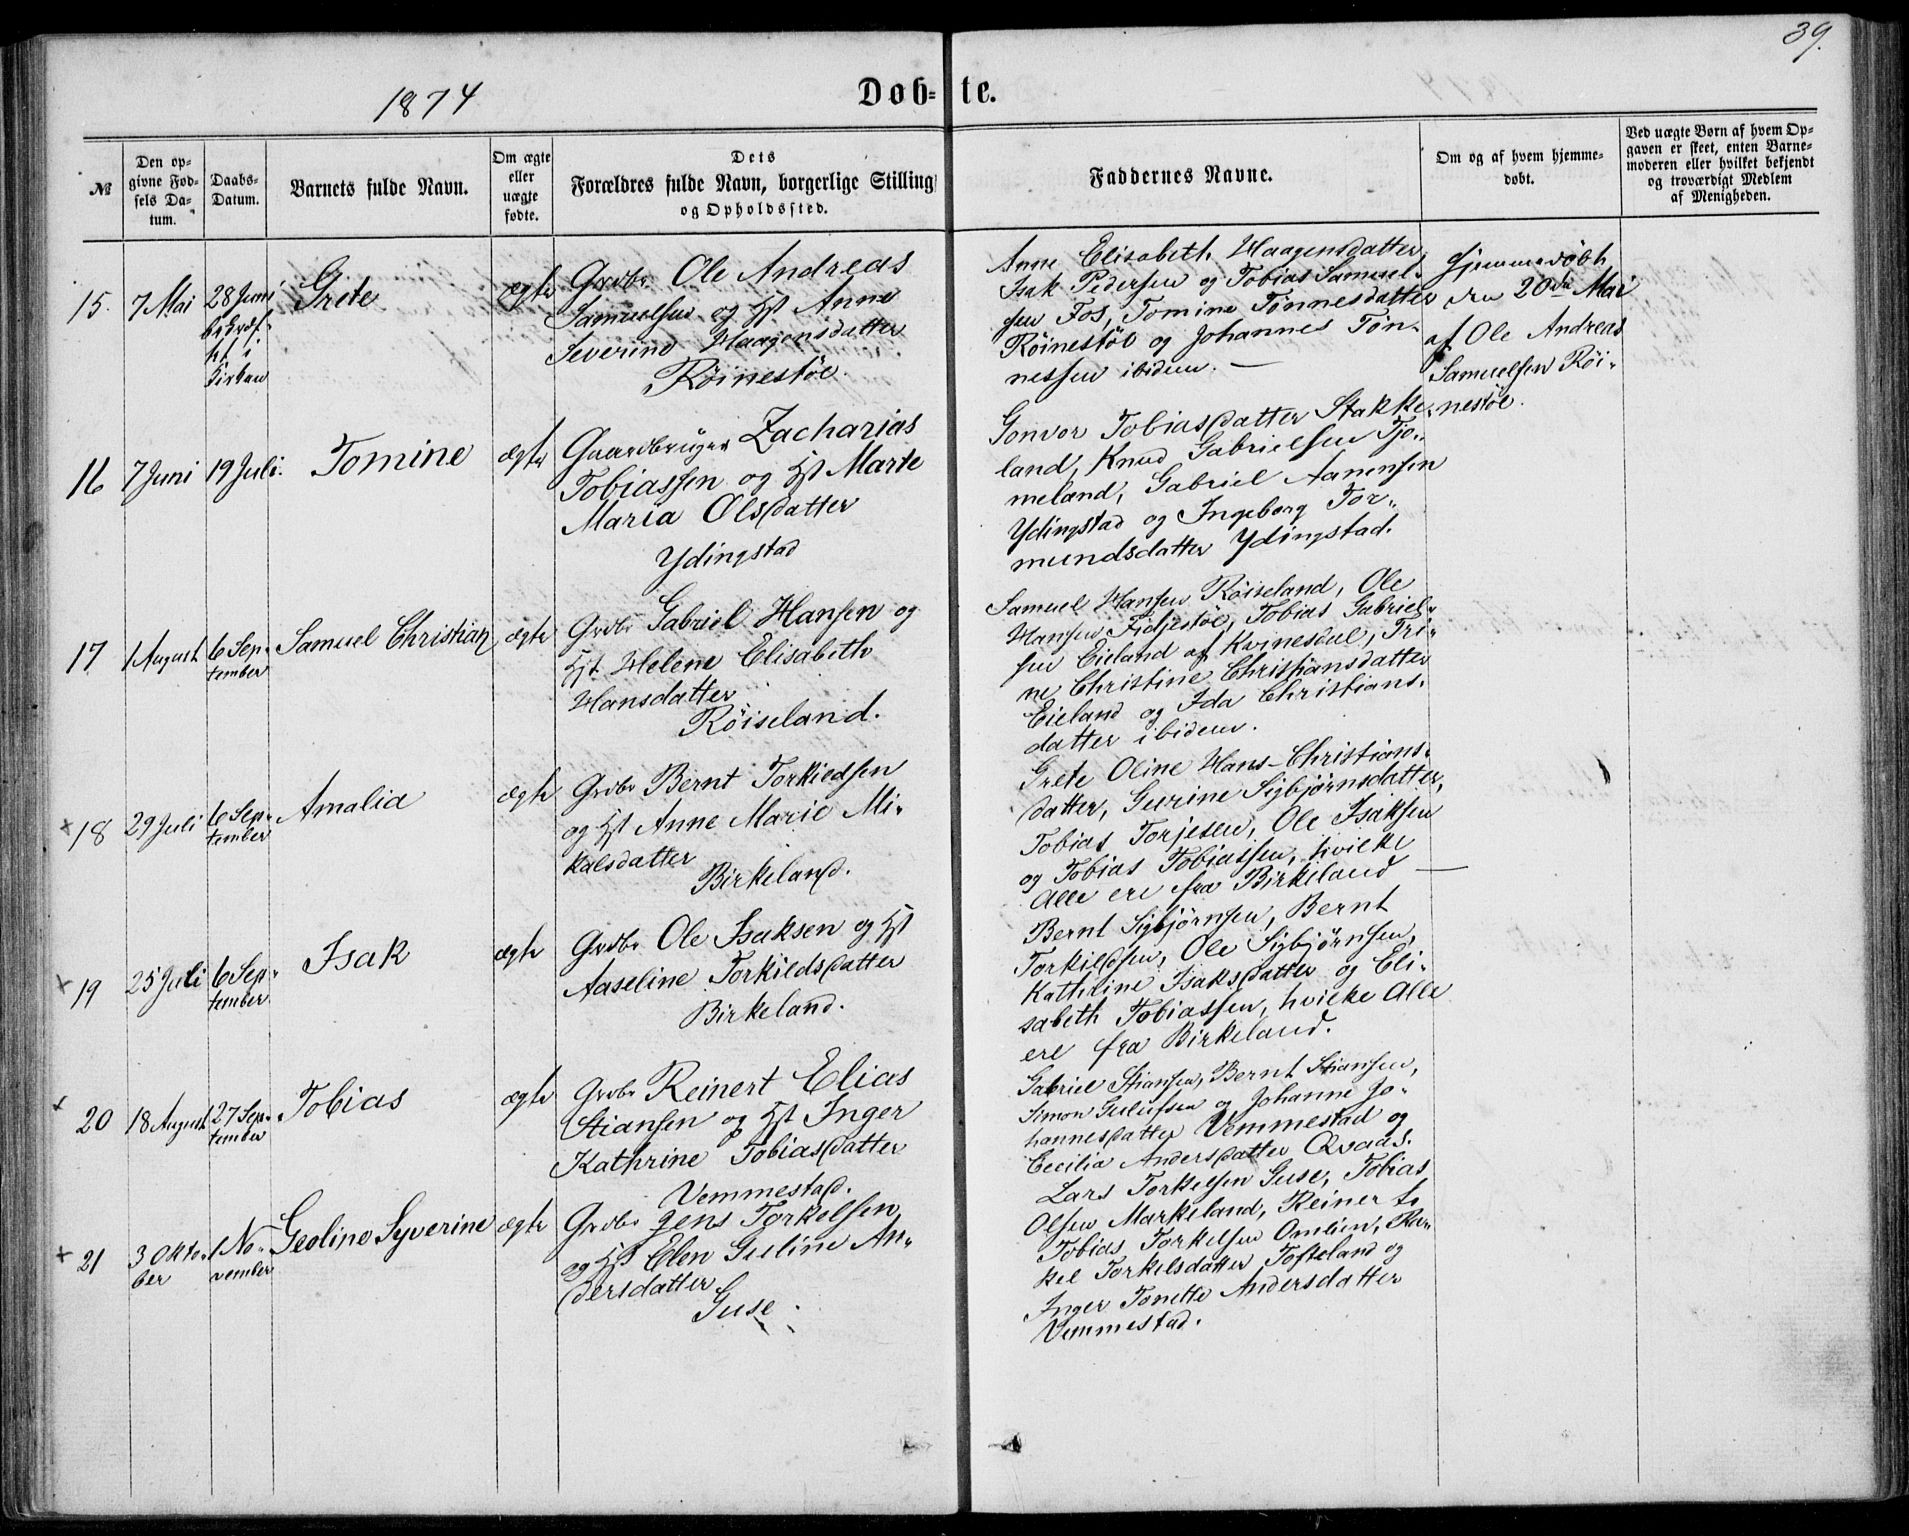 39.
1874
Døb=te.
№
Den op-
givne Fød-
sels Da-
tum.
Daabs-
Datum.
Barnets fulde Navn.
Om ægte
eller
uægte
fødte.
Dets
Forældres fulde Navn, borgerlige Stilling
og Opholdssted.
Faddernes Navne.
Om og af hvem hjemme-
døbt.
Ved uægte Børn af hvem Op-
gaven er skeet, enten Barne-
moderen eller hvilket bekjendt
og troværdigt Medlem
af Menigheden.
15.
7 Mai
28 Juni
bekræf-
tet i
Kirken
Grete
ægte
Grdbr Ole Andreas
Samuelsen og Hst Anne
Severine Haagensdatter
Röinestöl.
Anne Elisabeth Haagensdatter,
Isak Pedersen og Tobias Samuel-
sen Fos, Tomine Tønnesdatter
Röinestöl og Johannes Tön-
nessen ibidem. —
Hjemmedöbt
den 20de Mai
af Ole Andreas
Samuelsen Röi-
nestöl.
16
7 Juni
19 Juli.
Tomine
ægte
Gaardbruger Zacharias
Tobiassen og Hst Marte
Maria Olsdatter
Ydingstad
Gonvor Tobiasdatter Stakke-
land, Knud Gabrielsen Tjo-
meland, Gabriel Aanensen
Ydingstad og Ingeborg Tor-
mundsdatter Ydingstad.
17
1 August
6 Sep-
tember
Samuel Christian
ægte
Grdbr Gabriel Hansen og
Hst. Helene Elisabeth
Hansdatter
Röiseland.
Samuel Hansen Röiseland, Ole
Hansen Fidjestöl, Tobias Gabriel-
sen Eieland af Kvinesdal, Tri-
ne Christine Christiansdatter
Eieland og Ida Christians-
datter ibidem.
x 18
29 Juli
6 Sep-
tember
Amalia
ægte
Grdbr Bernt Torkildsen
og Hst Anne Marie Mi-
kalsdatter
Birkeland.
Grete Oline Hans-Christians-
datter, Gurine Sigbjørnsdatter,
Tobias Torjesen, Ole Isaksen
og Tobias Tobiassen, hvilke
Alle ere fra Birkeland —
x 19
25 Juli
6 Sep-
tember
Isak
ægte
Grdbr Ole Isaksen og Hst
Aaseline Torkildsdatter
Birkeland.
Bernt Sigbjørnsen, Bernt
Torkildsen, Ole Sigbjørnsen,
Kathrine Isaksdatter og Eli-
sabeth Tobiassen, hvilke Alle
ere fra Birkeland.
x 20
18 August
27 Sep-
tember
Tobias
ægte
Grdbr Reinert Elias
Stiansen og Hst Inger
Kathrine Tobiasdatter
Vemmestad.
Gabriel Stiansen, Bernt Stiansen,
Simon Gulufsen og Johanne Jo-
hannesdatter Vemmestad og
Cecilia Andersdatter Qvaas.
x 21
3 Okto-
ber
1 No-
vember
Geoline Syverine
ægte
Grdbr Jens Torkelsen
og Hst Elen Guline An-
dersdatter
Guse.
Lars Torkelsen Guse, Tobias
Olsen Markeland, Reinert
Tobias Torkelsen Omlien, Ra-
kel Torkelsdatter Tofteland og
Inger Tonette Andersdatter
Vemmestad.